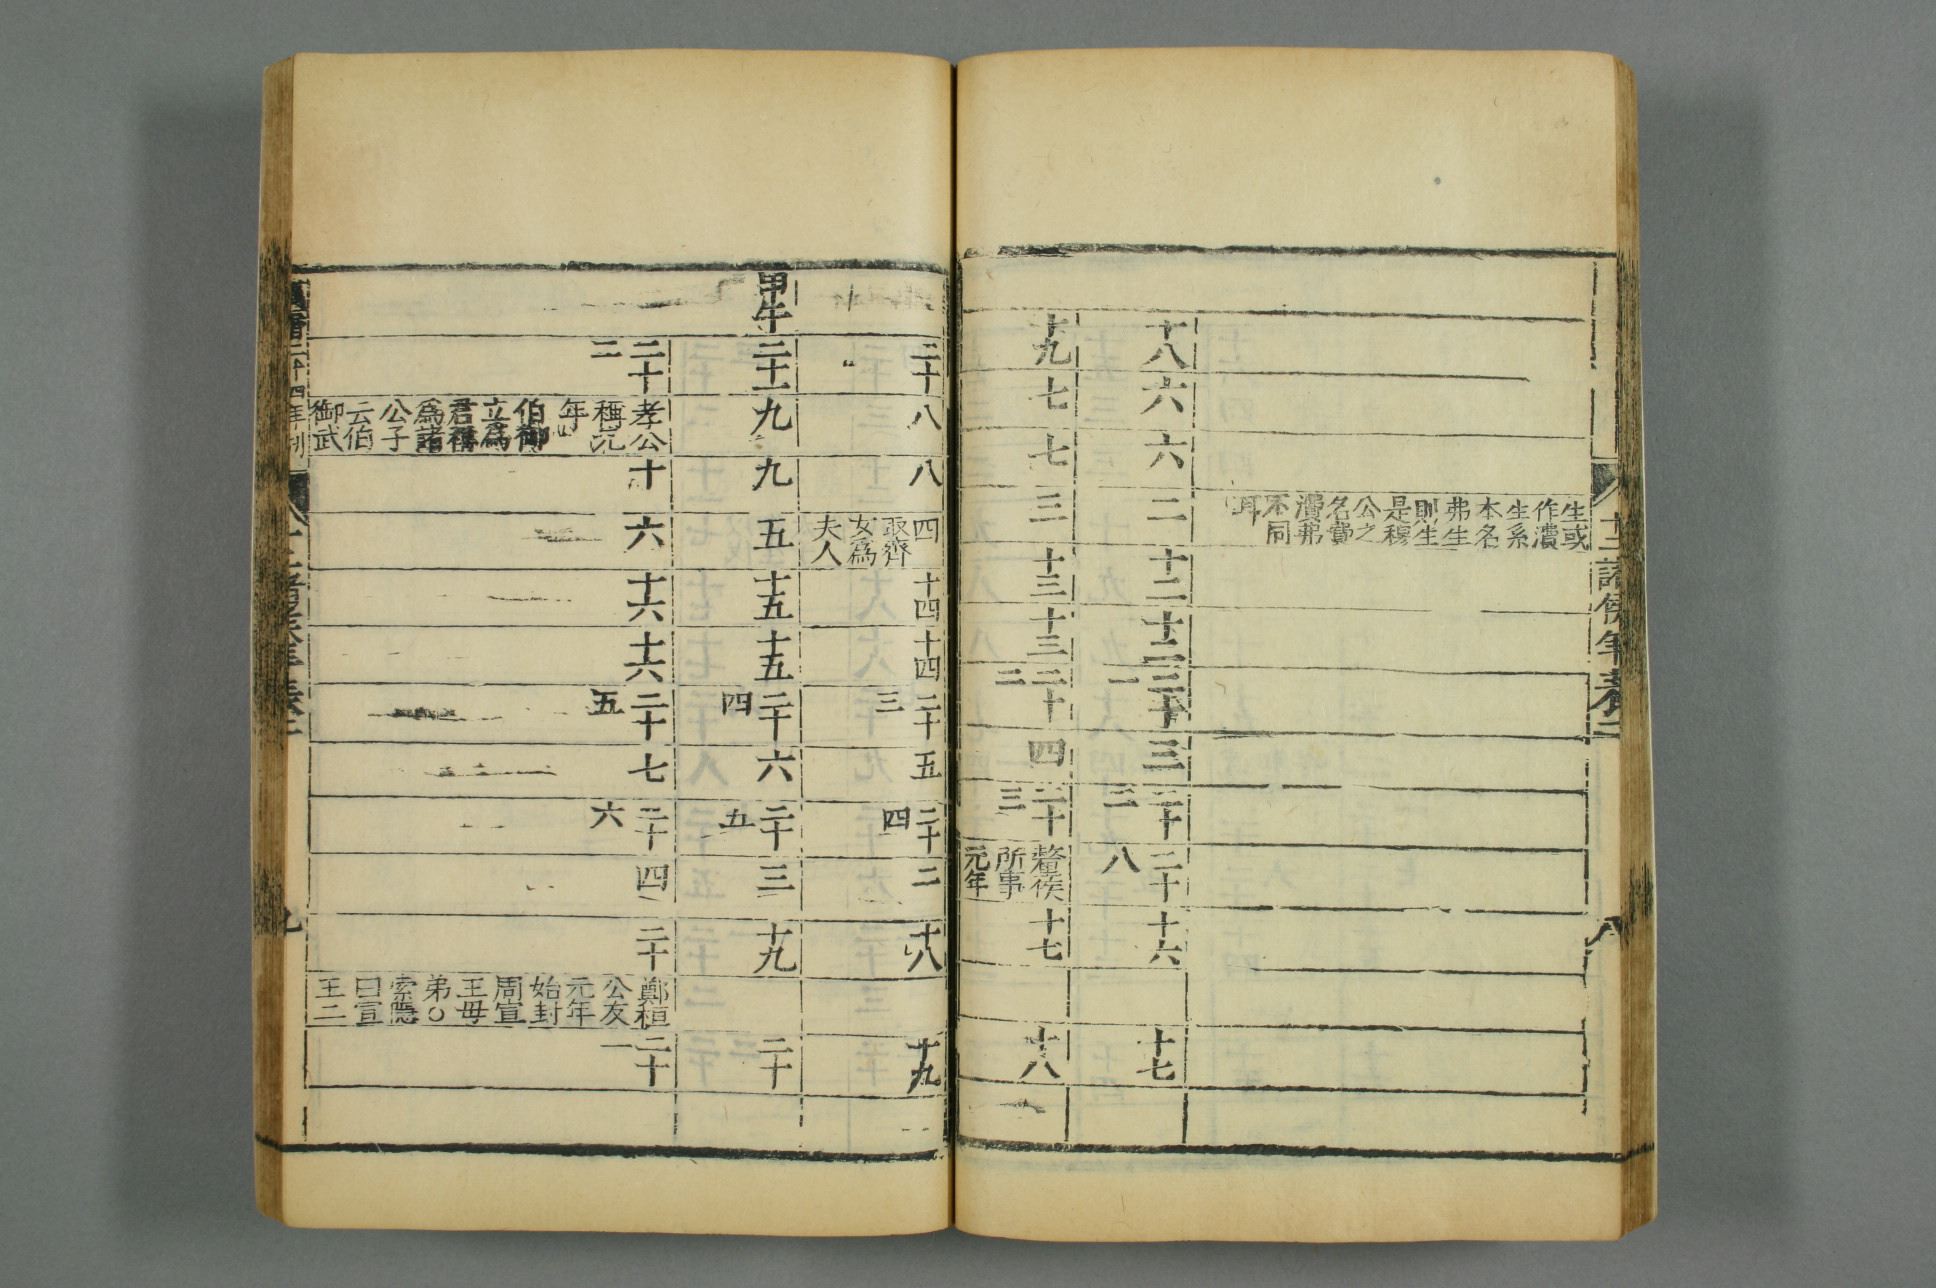 十二諸侯年表卷二
八
生或
作濆
生系
本名
弗生
則生
是穆
公之
名費
濆弗
不同
耳
十八
六
六
二
十二
十二
二十一
三
二十
二十八
十六
十七
十九
七
七
三
十三
十三
二十二
四
二十三
釐侯
所事
元年
十七
十八
二十
八
八
四
取齊
女為
夫人
十四
十四
二十三
五
二十四
二
十八
十九
甲午
二十一
九
九
五
十五
十五
二十四
六
二十五
三
十九
二十
二十二
孝公
稱元
年
伯御
立為
君稱
為諸
公子
云伯
御武
十
六
十六
十六
二十五
七
二十六
四
二十
鄭桓
公友
元年
始封
周宣
王母
弟○
索隱
曰宣
王二
二十一
二十四年刊
九